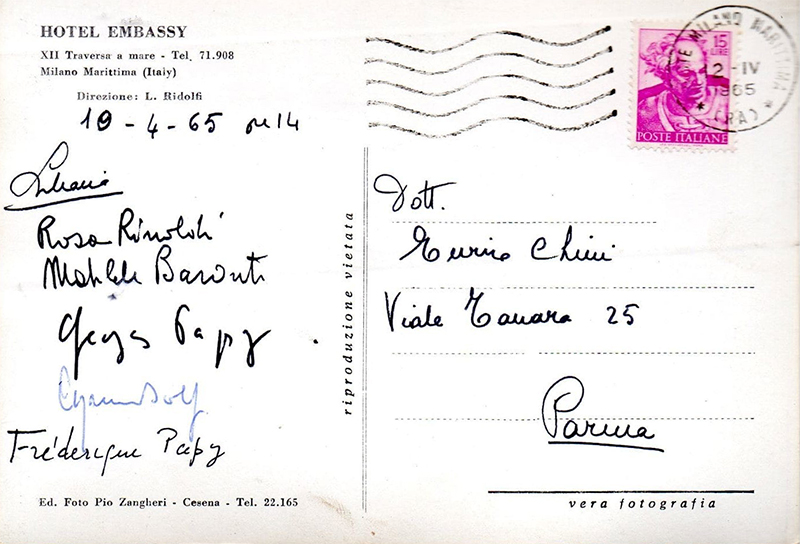 HOTEL EMBASSY
XII Traversa a mare - Tel. 71.908
Milano Marittima (Italy)
Direzione: L. Ridolfi
10 - 4 - 65 ore 14
Rosa Rinoldi
Matilde Baronti
Georges Papy
Frédérique Papy
Ed. Foto Pio Zangheri - Cesena - Tel. 22.165
riproduzione vietata
15
LIRE
POSTE ITALIANE
MILANO MARITTIMA
12-IV
1965
(RA)
Dott.
Enrico Chini
Viale Tanara 25
Parma
vera fotografia